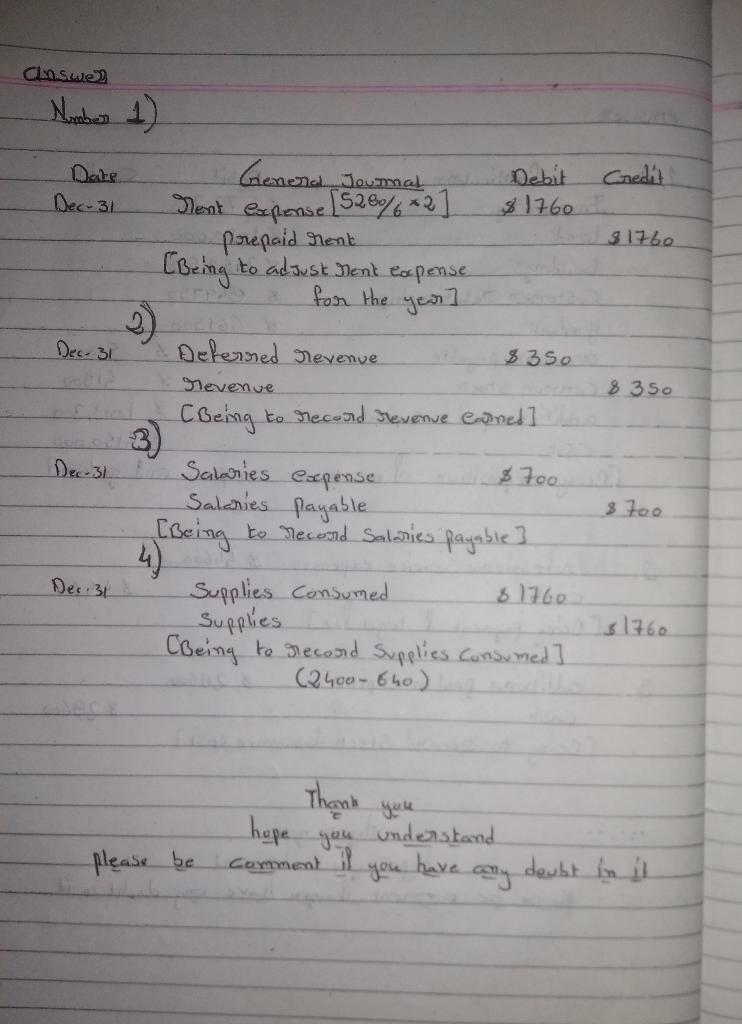 Answer
Number 1)
Date General Journal Debit Credit
Dec-31 Rent expense [5280/6 *2] $1760
prepaid rent $1760
[Being to adjust rent expense
for the year]
2)
Dec-31 Deferred revenue $350
revenue $350
[Being to record revenue earned]
3)
Dec-31 Salaries expense $700
Salaries payable $700
[Being to record Salaries payable]
4)
Dec.31 Supplies Consumed $1760
Supplies $1760
[Being to record Supplies Consumed]
(2400-640)
Thank you
hope you understand
please be comment if you have any doubt in it